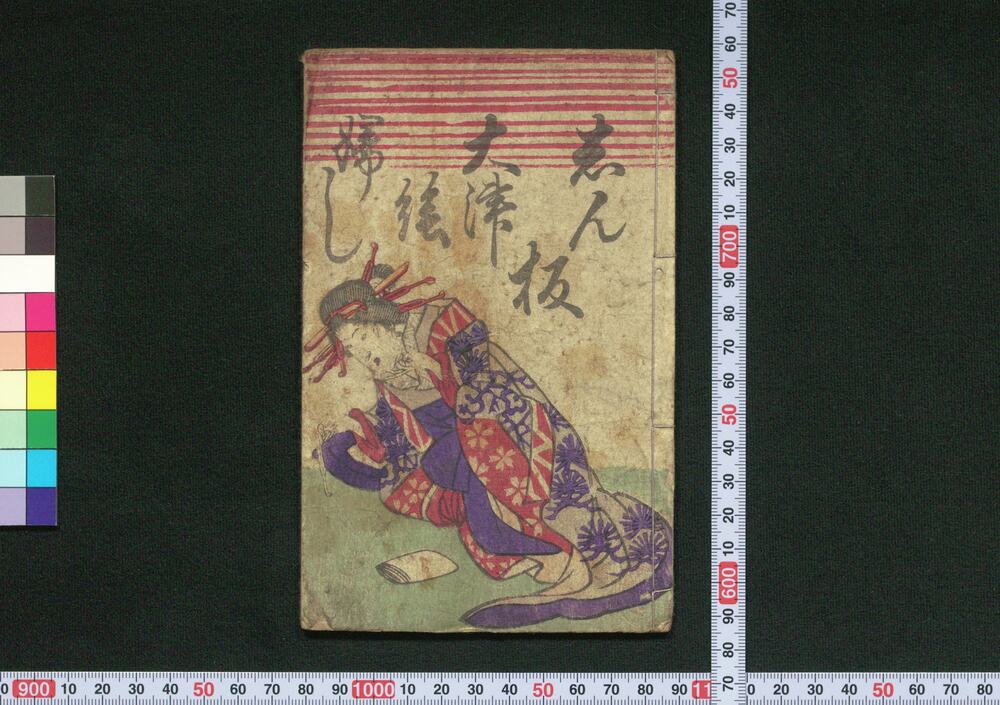 志ん
板
大津
絵
婦し
70 60 50 40 30 20 10 700 90 80 70 60 50 40 30 20 10 600 90 80 70
0 900 10 20 30 40 50 60 70 80 90 1000 10 20 30 40 50 60 70 80 90 11
20 30 40 50 60 70 80